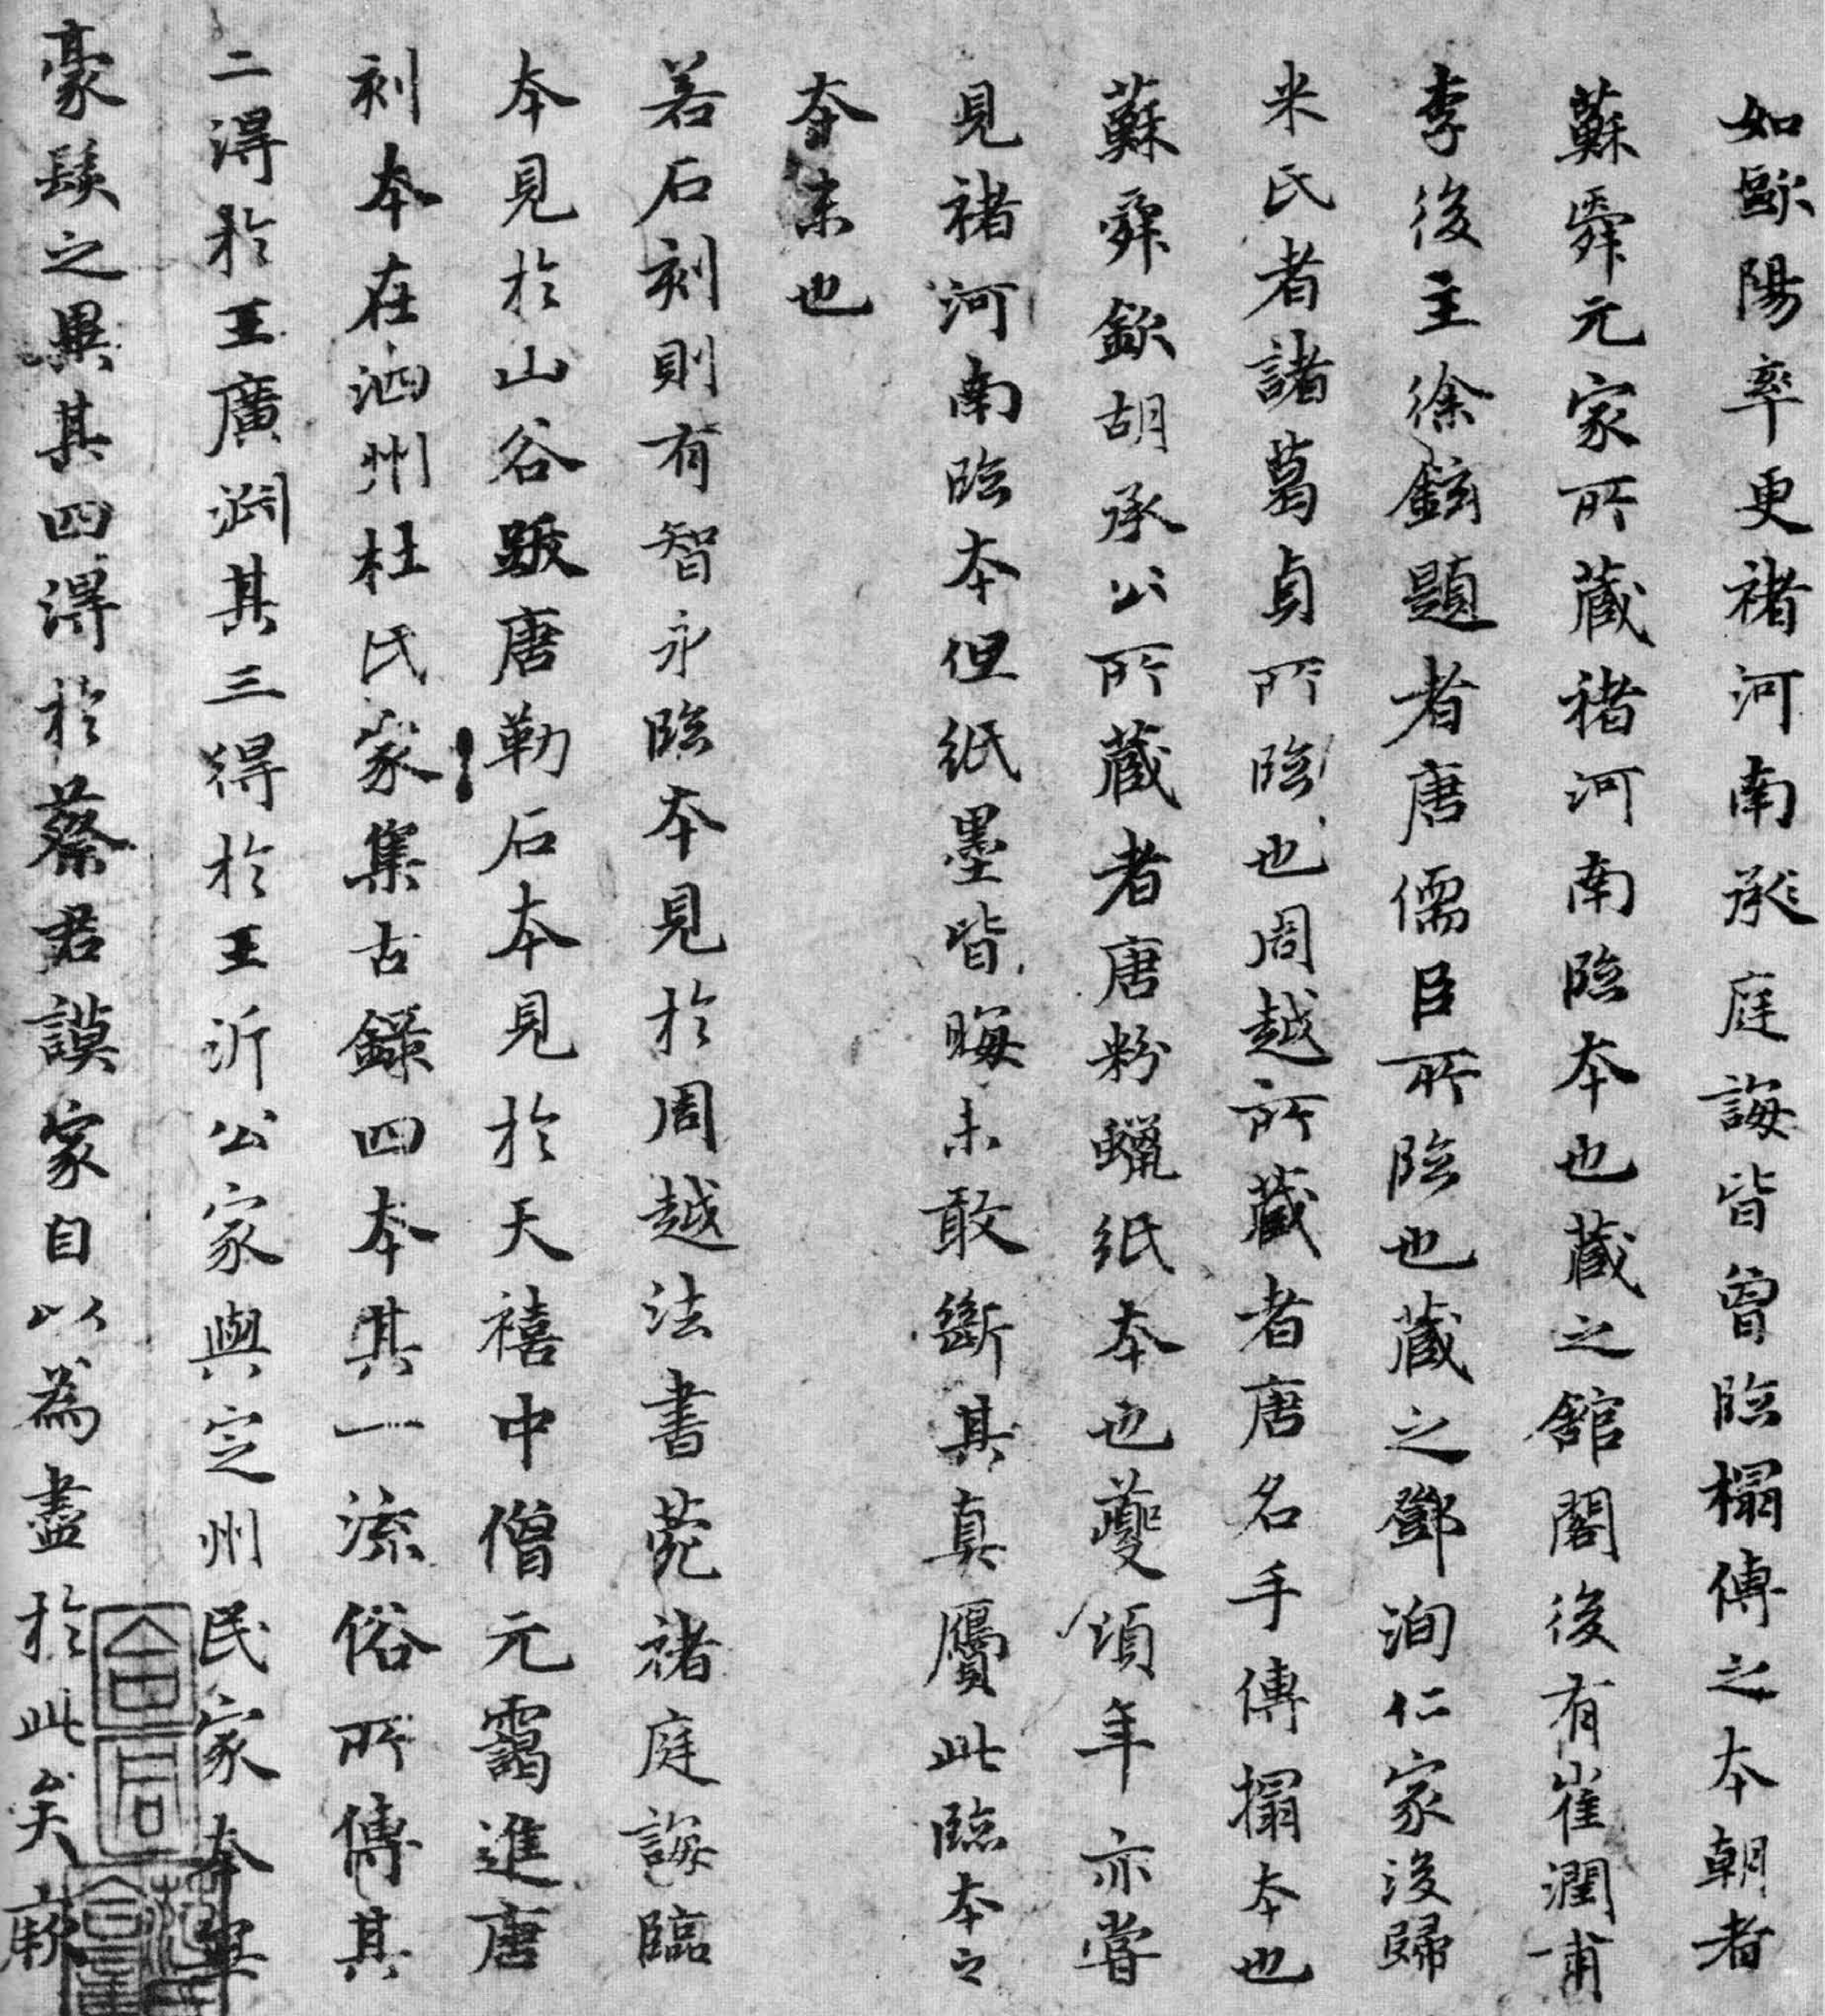 如歐陽率更褚河南承庭誨皆曾臨榻傳之本朝者
蘇舜元家所藏褚河南臨本也藏之館閣後有崔潤甫
李後主徐鉉題者唐儒臣所臨也藏之鄧洵仁家後歸
米氏者諸葛貞所臨也周越所藏者唐名手傳搨本也
蘇舜欽胡承公所藏者唐粉蠟紙本也夔頃年亦嘗
見褚河南臨本但紙墨皆晦未敢斷其真贗此臨本之
夲末也
若石刻則有智永臨本見於周越法書菀褚庭誨臨
本見於山谷跋唐勒石本見於天禧中僧元靄進唐
刻本在泗州杜氏家集古錄四本其一流俗所傳其
二得於王廣淵其三得於王沂公家與定州民家本無
豪髮之異其四得於蔡君謨家自以為盡於此矣